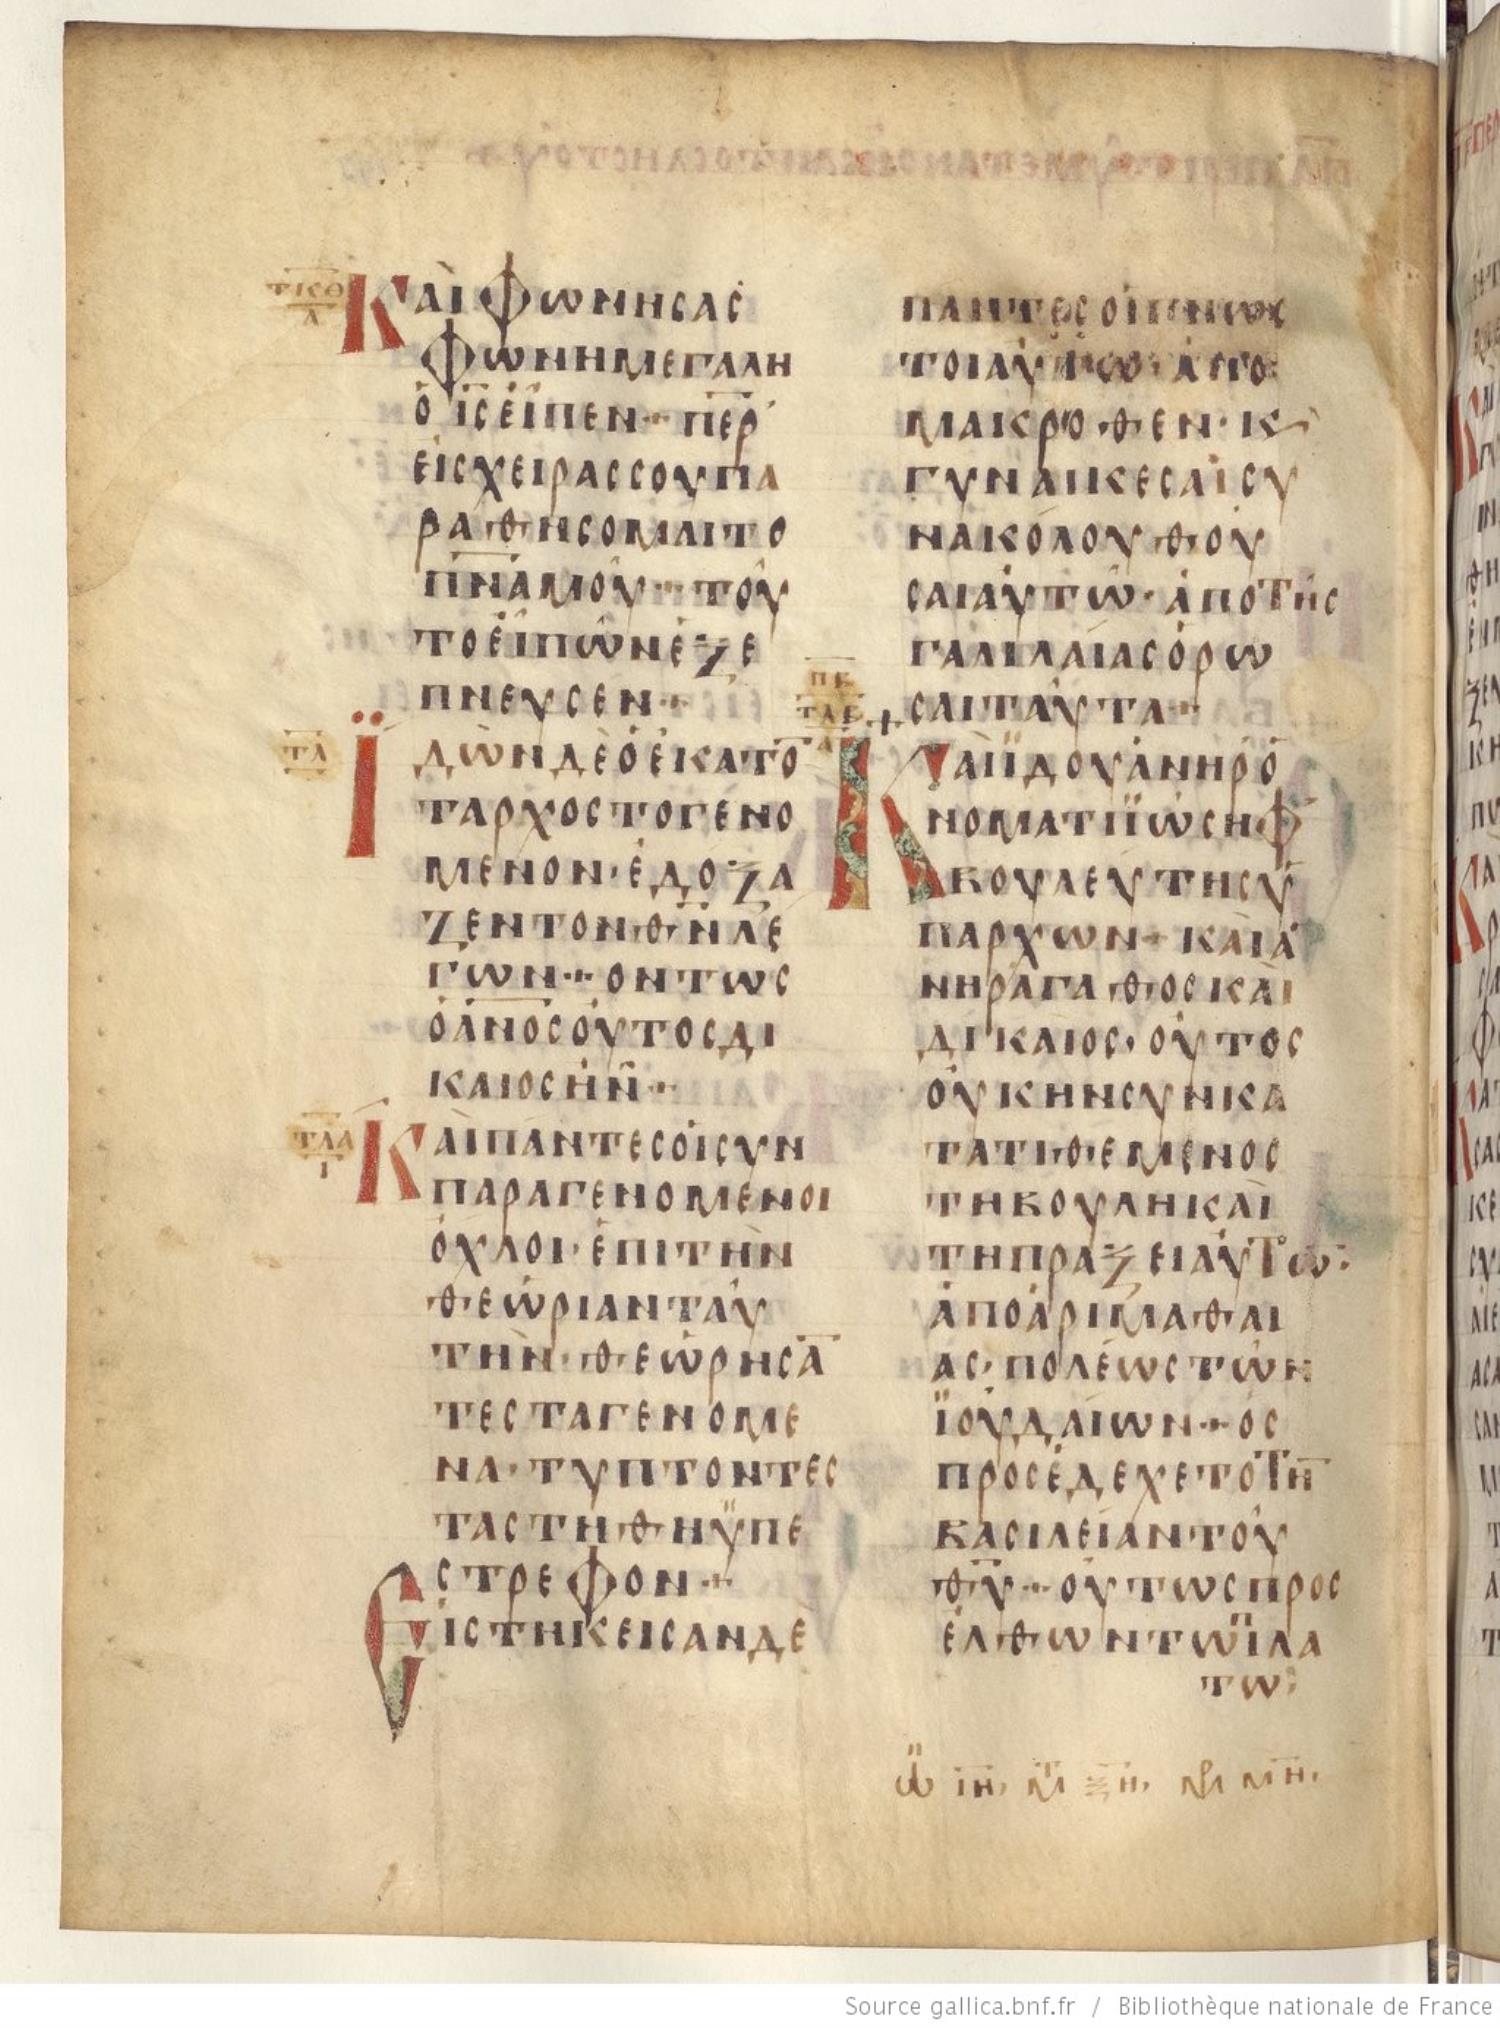 ΤΚΘ
Α
ΚΑῚ ΦΩΝΗΣΑΣ
ΦΩΝΗΜΕΓΑΛΗ
Ὁ ΙΣΕΙΠΕΝ·· ΠΕΡ
ΕΙΣΧΕΙΡΑΣΣΟΥΠΑ
ΡΑΘΗΣΟΜΑΙΤΟ
ΠΝΑΜΟΥ·· ΤΟΥ
ΤΟΕΙΠΩΝΕΞΕ
ΠΝΕΥΣΕΝ··
ΤΛ
ΪΔΩΝΔΕΟΕΚΑΤΟ̅
ΤΑΡΧΟΣΤΟΓΕΝΟ
ΜΕΝΟΝ·ΕΔΟΞΑ
ΖΕΝΤΟΝΘΝΛΕ
ΓΩΝ··ΟΝΤΩΣ
ΟΑΝΟΣΟΥΤΟΣΔΙ
ΚΑΙΟΣΗΝ··
ΤΛΑ
Ι
ΚΑΙΠΑΝΤΕΣΟΙΣΥΝ
ΠΑΡΑΓΕΝΟΜΕΝΟΙ
ΟΧΛΟΙ·ΕΠΙΤΗΝ
ΘΕΩΡΙΑΝΤΑΥ
ΤΗΝ·ΘΕΩΡΗΣΑ̅
ΤΕΣΤΑΓΕΝΟΜΕ
ΝΑ·ΤΥΠΤΟΝΤΕΣ
ΤΑΣΤΗΘΗΫΠΕ
ΣΤΡΕΦΟΝ··
ΕΙΣΤΗΚΕΙΣΑΝΔΕ
ΠΑΝΤΕΣΟΙΓΝΩΣ
ΤΟΙΑΥΤΩ·ΑΠΟ
ΜΑΚΡΟΘΕΝ·Κ
ΓΥΝΑΙΚΕΣΑΙΣΥ
ΝΑΚΟΛΟΥΘΟΥ
ΣΑΙΑΥΤΩ·ΑΠΟΤΗΣ
ΓΑΛΙΛΑΙΑΣΟΡΩ
ΣΑΙΤΑΥΤΑ··
ΠΒ
ΤΛΒ
Α
ΚΑΙΪΔΟΥΑΝΗΡΟ
ΝΟΜΑΤΙΪΩΣΗΦ
ΒΟΥΛΕΥΤΗΣΥ
ΠΑΡΧΩΝ·ΚΑΙΑ
ΝΗΡΑΓΑΘΟΣΚΑΙ
ΔΙΚΑΙΟΣ·ΟΥΤΟΣ
ΟΥΚΗΝΣΥΝΚΑ
ΤΑΤΙΘΕΜΕΝΟΣ
ΤΗΒΟΥΛΗΚΑΙ
ΤΗΠΡΑΞΕΙΑΥΤΩ·
ΑΠΟΑΡΙΜΑΘΑΙ
ΑΣ·ΠΟΛΕΩΣΤΩΝ
ΪΟΥΔΑΙΩΝ··ΟΣ
ΠΡΟΣΕΔΕΧΕΤΟΤΗ̅
ΒΑΣΙΛΕΙΑΝΤΟΥ
ΘΥ··ΟΥΤΩΣΠΡΟΣ
ΕΛΘΩΝΤΩΪΛΑ
ΤΩ·
ΙΗ, Μ ΞΗ, ΜΗ,
Source gallica.bnf.fr / Bibliothèque nationale de France